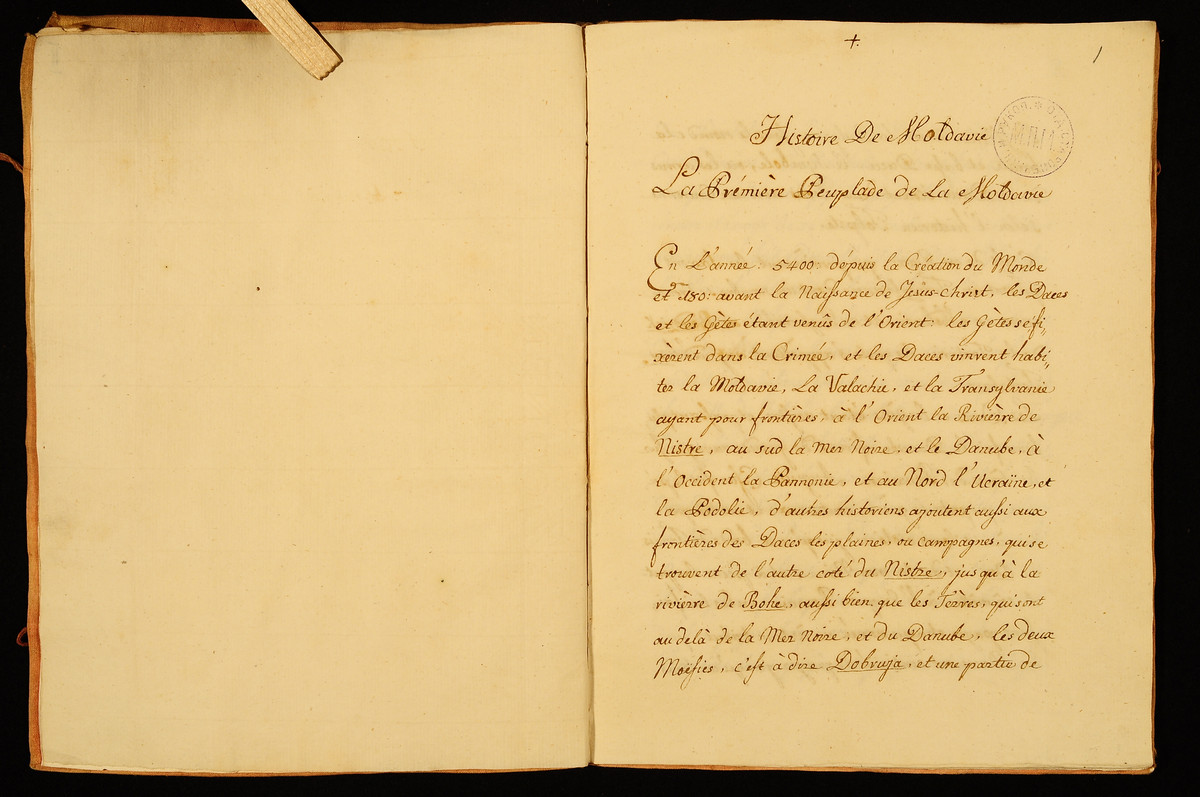 +
1
Histoire De Moldavie
La Prémière Peuplade de La Moldavie
En L'année: 5400: dépuis la Création du Monde
et 180: avant la Naissance de Jesus-Christ, les Daces
et les Gètes étant venûs de l'Orient: les Gètes se fi,,
xèrent dans la Crimée, et les Daces vinrent habi,,
ter la Moldavie, La Valachie, et la Transylvanie
ayant pour frontières, à l'Orient la Rivière de
Nistre, au sud la Mer Noire, et le Danube, à
l'Occident la Pannonie, et au Nord l'Ucraïne, et
la Podolie, d'autres historiens ajoutent aussi aux
frontières des Daces les plaines, ou campagnes, qui se
trouvent de l'autre coté du Nistre, jusqu'à la
rivière de Bohe, aussi bien que les Tèrres, qui sont
au delà de la Mer Noire, et du Danube, les deux
Moësies, c'est à dire Dobruja, et une partie de